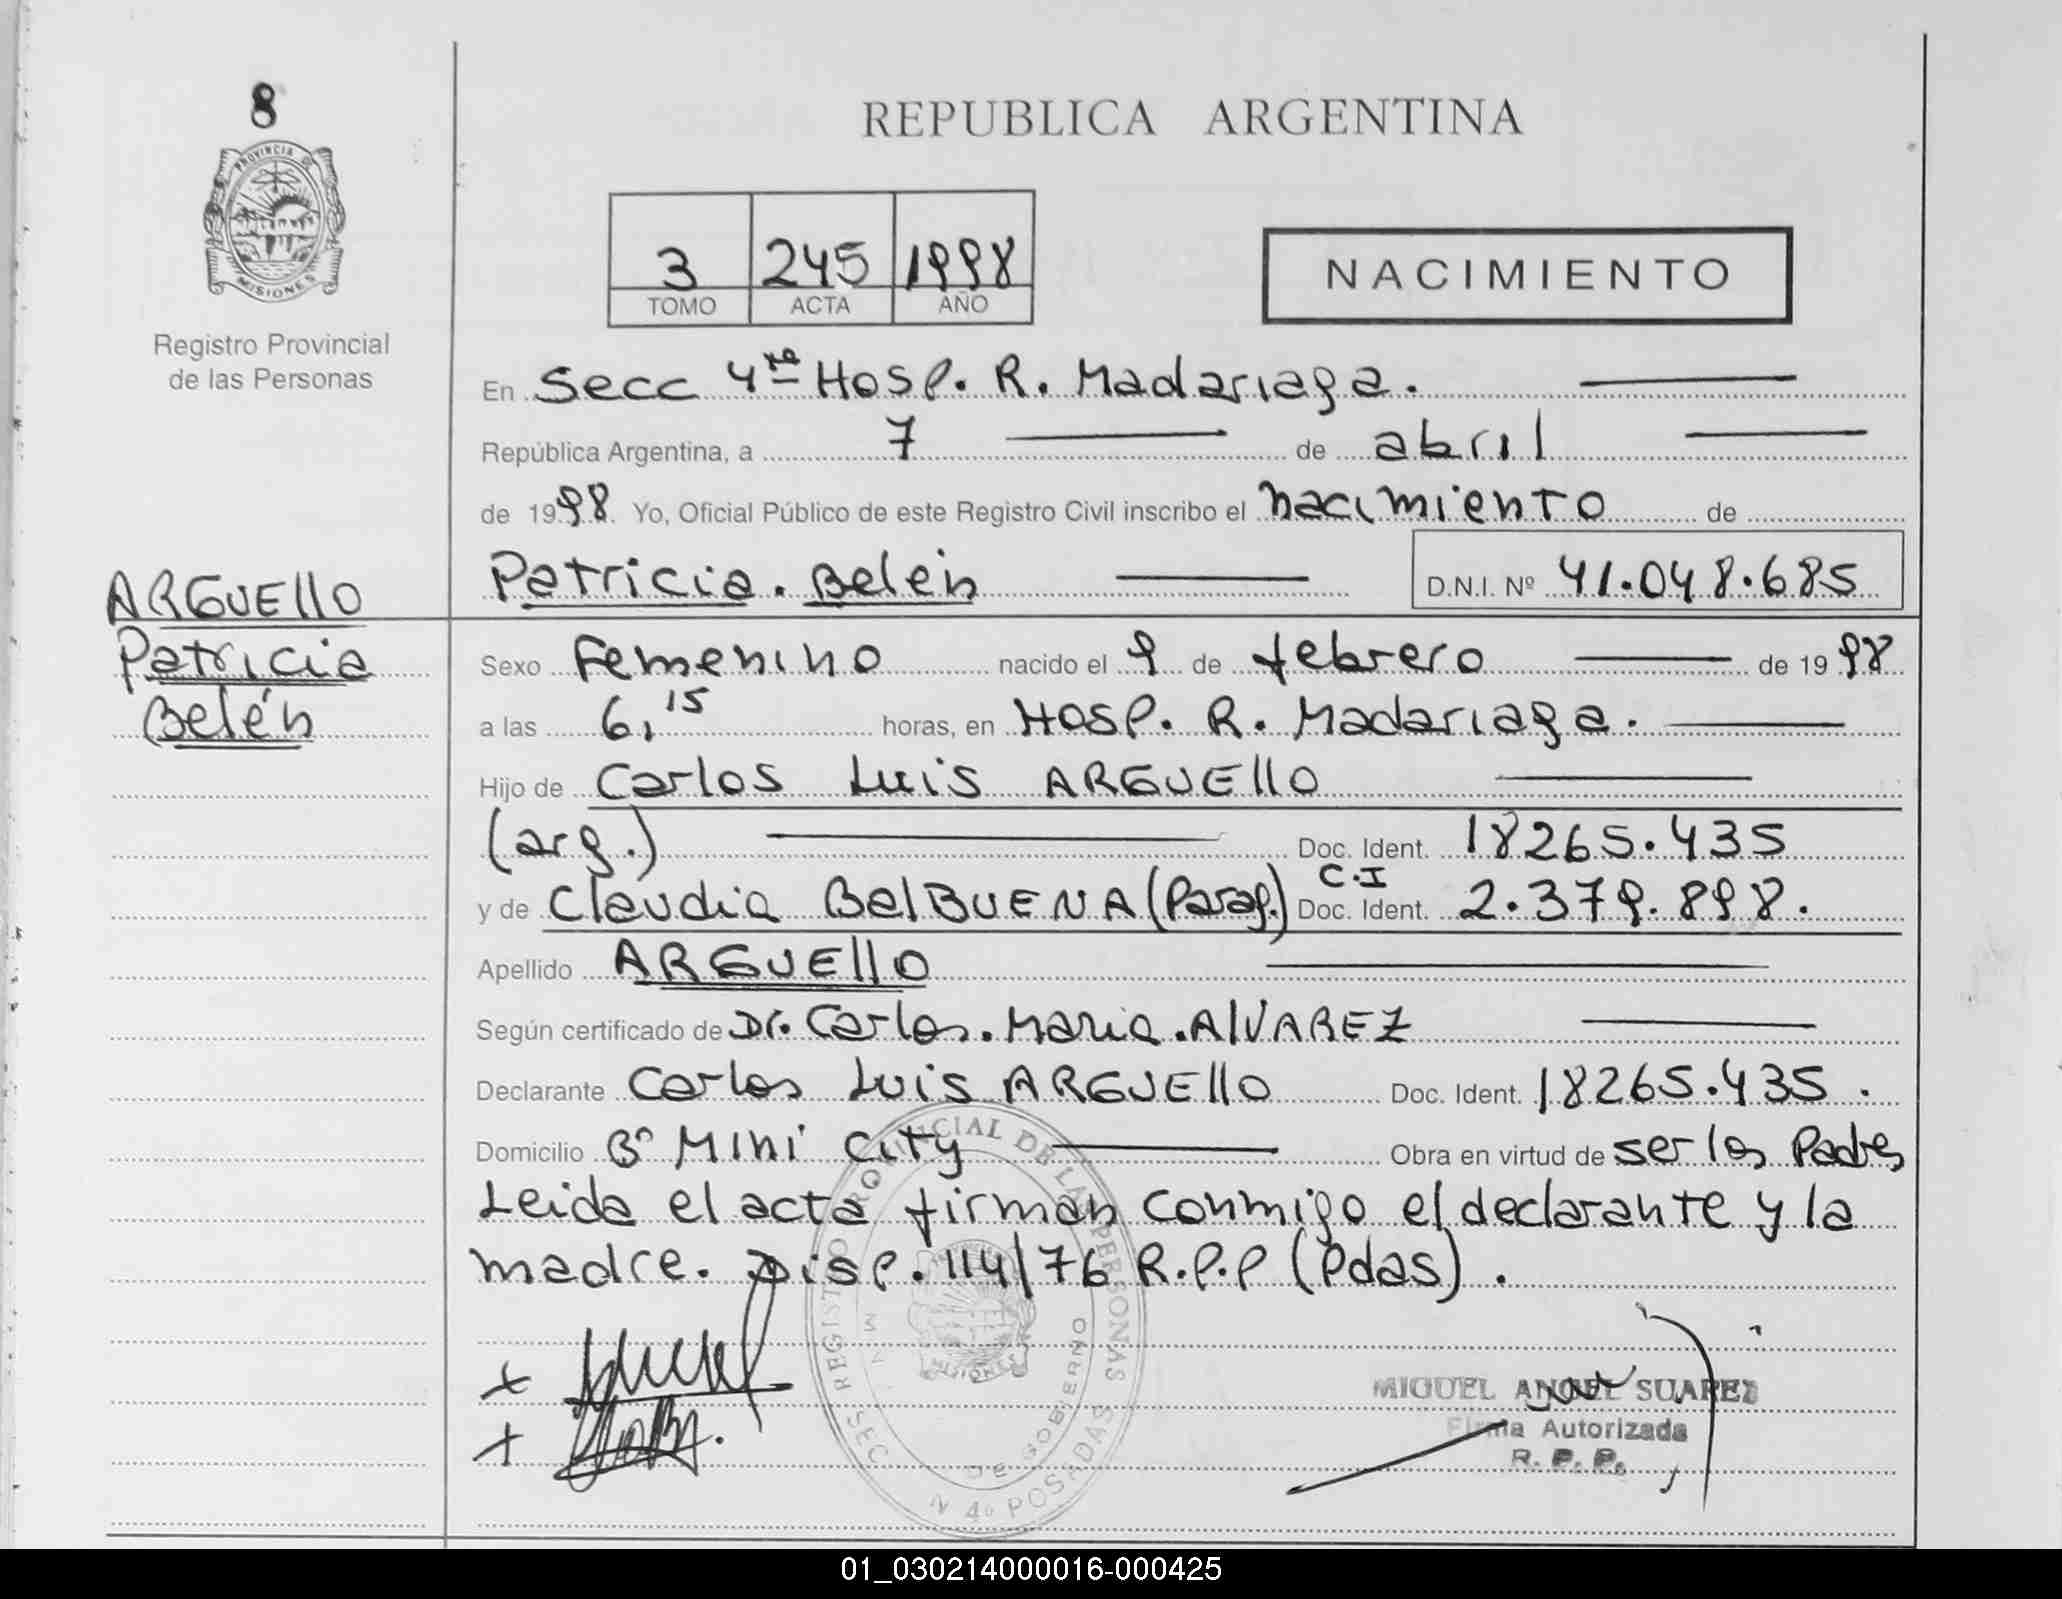 8
PROVINCIA DE
MISIONES
Registro Provincial
de las Personas
REPUBLICA ARGENTINA
3 245 1998
TOMO ACTA AÑO
NACIMIENTO
En Secc 4ta Hosp. R. Madariaga.
República Argentina, a 7 de abril
de 1998. Yo, Oficial Público de este Registro Civil inscribo el nacimiento de
Patricia. Belén D.N.I. Nº 41.048.685
ARGUEllO
Patricia
Belén
Sexo Femenino nacido el 9 de febrero de 1998
a las 6,15 horas, en Hosp. R. Madariaga.
Hijo de Carlos Luis ARGUEllO
(arg.) Doc. Ident. 18265.435
y de Claudia BelBUENA (Parag.) C.I Doc. Ident. 2.379.898.
Apellido ARGUEllO
Según certificado de Dr. Carlos. Maria. AlVAREZ
Declarante Carlos Luis ARGUEllO Doc. Ident. 18265.435.
Domicilio Bº Mini City Obra en virtud de ser los Padres
Leida el acta firman conmigo el declarante y la
madre. Disp. 114/76 R.P.P (Pdas).
REGISTRO PROVINCIAL DE LAS PERSONAS
MISIONES
DE GOBIERNO
SEC N 4º POSADAS
MIGUEL ANGEL SUAREZ
Firma Autorizada
R. P. P.
01_030214000016-000425